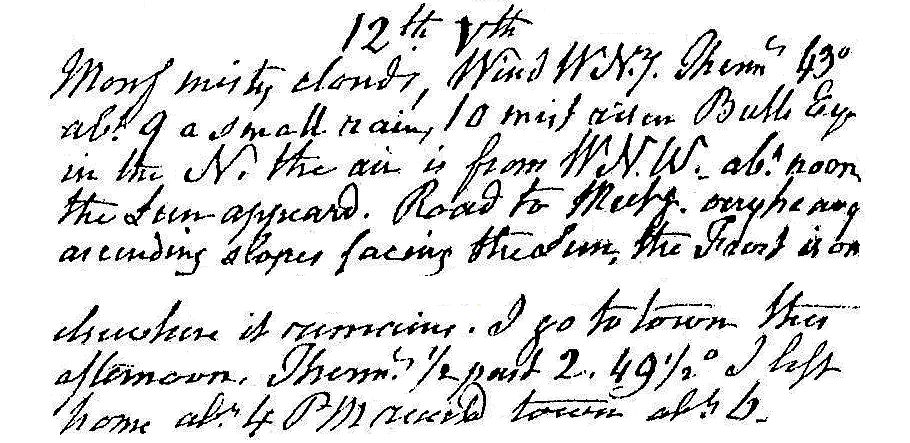 12th Vth
Morng misty, clouds, Wind W N.y. Thermr 43°
abt. 9 a small rain, 10 mist risen Bulls Eye
in the N. the air is from W N.W. abt. noon
the Sun appeard. Road to Meetg. very heavy
ascending slopes facing the Sun, the Frost is on
elsewhere it remains. I go to town this
afternoon. Thermr. ½ past 2. 49½° I left
home abt 4 PM reached town abt 6.